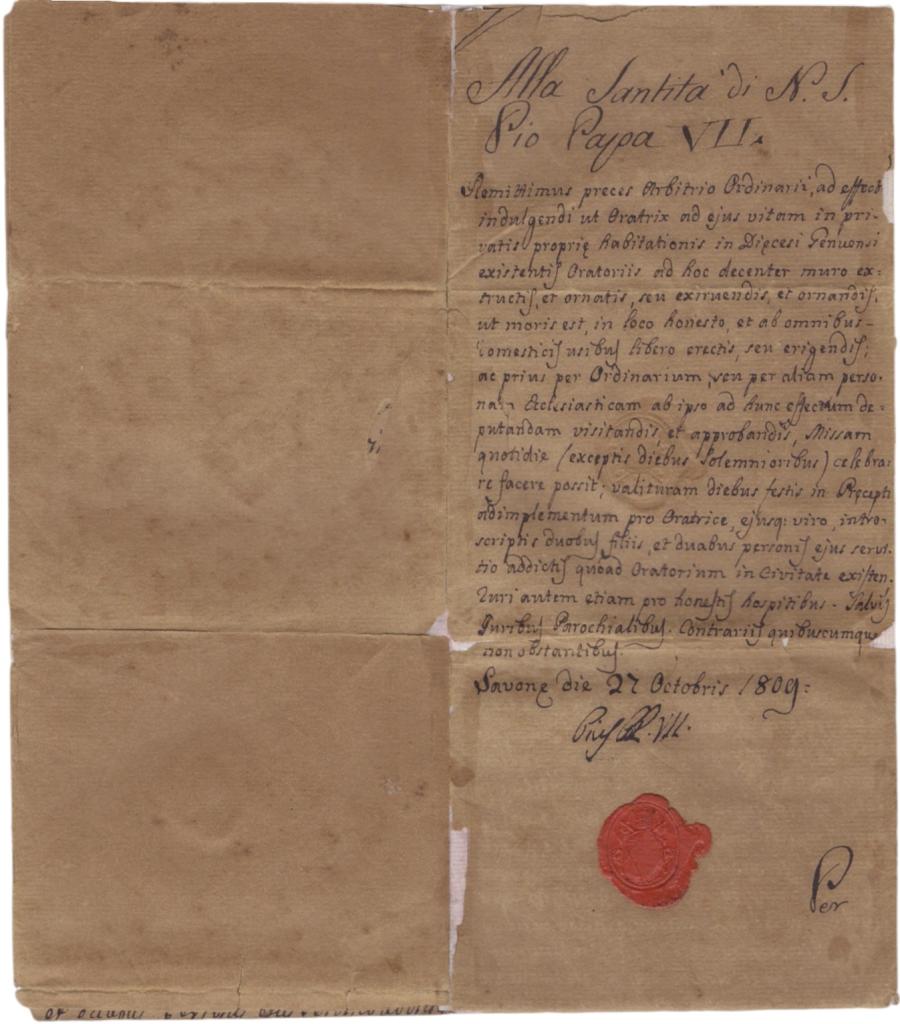 Alla Santità di N. S.
Pio Papa VII.
Remittimus preces Arbitrio Ordinarii, ad effect
indulgendi ut Oratrix ad ejus vitam in pri-
vatis proprię habitationis in Dięcesi Genuensi
existentis Oratoriis ad hoc decenter muro ex=
tructis, et ornatis, seu exiruendis, et ornandis,
ut moris est, in loco honesto, et ab omnibus-
omesticis usibus libero erectis, seu erigendis;
ac prius per Ordinarium, seu per aliam perso-
nam Ecclesiasticam ab ipso ad hunc effectum de=
putandam visitandis, et approbandis, Missam
quotidie (exceptis diebus solemnioribus) celebra-
re facere possit; valituram diebus festis in Pręcepti
adimplementum pro Oratrice, ejusq: viro, intro-
scriptis duobus filiis, et duabus personis ejus servi-
tio addictis quoad Oratorium in Civitate existen.
Ruri autem etiam pro honestis hospitibus. Salvis
Juribus Parochialibus. Contrariis quibuscumque
non obstantibus.
Savonę die 27 Octobris 1809:
Pius PP. VII.
Per